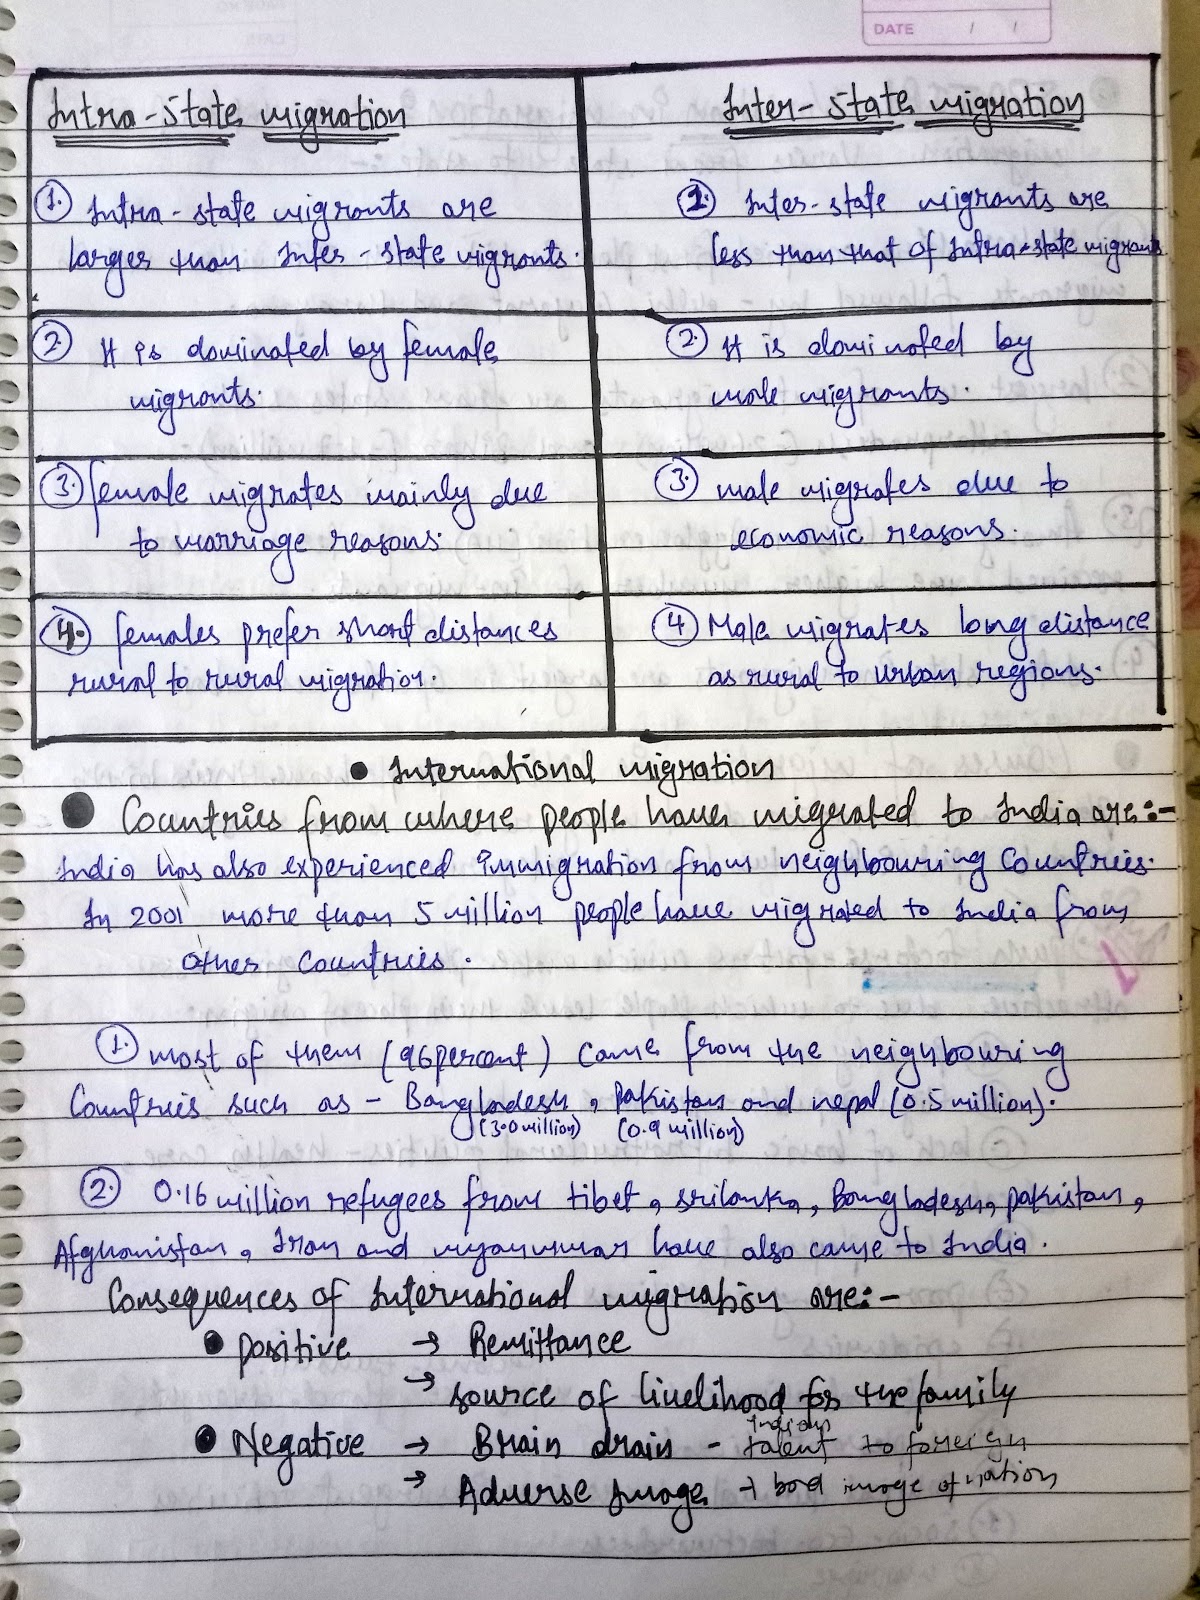 DATE / /
Intra-State migration
Inter-State migration
1. Intra-state migrants are
larger than Inter-state migrants.
1. Inter-state migrants are
less than that of Intra-state migrants
2. It is dominated by female
migrants.
2. It is dominated by
male migrants.
3. female migrates mainly due
to marriage reasons.
3. male migrates due to
economic reasons.
4. females prefer short distances
rural to rural migration.
4 Male migrates long distance
as rural to urban regions.
• International migration
● Countries from where people have migrated to India are:-
India has also experienced immigration from neighbouring countries.
In 2001 more than 5 million people have migrated to India from
other countries.
1. most of them (96 percent) came from the neighbouring
Countries such as - Bangladesh, pakistan and nepal (0.5 million).
(3.0 million) (0.9 million)
2. 0.16 million refugees from tibet, srilanka, Bangladesh, pakistan,
Afghanistan, Iran and myanmmar have also came to India.
Consequences of International migration are:-
● positive → Remittance
→ source of livelihood for the family
● Negative → Brain drain - Indian talent to foreign
→ Adverse Image → bad image of nation